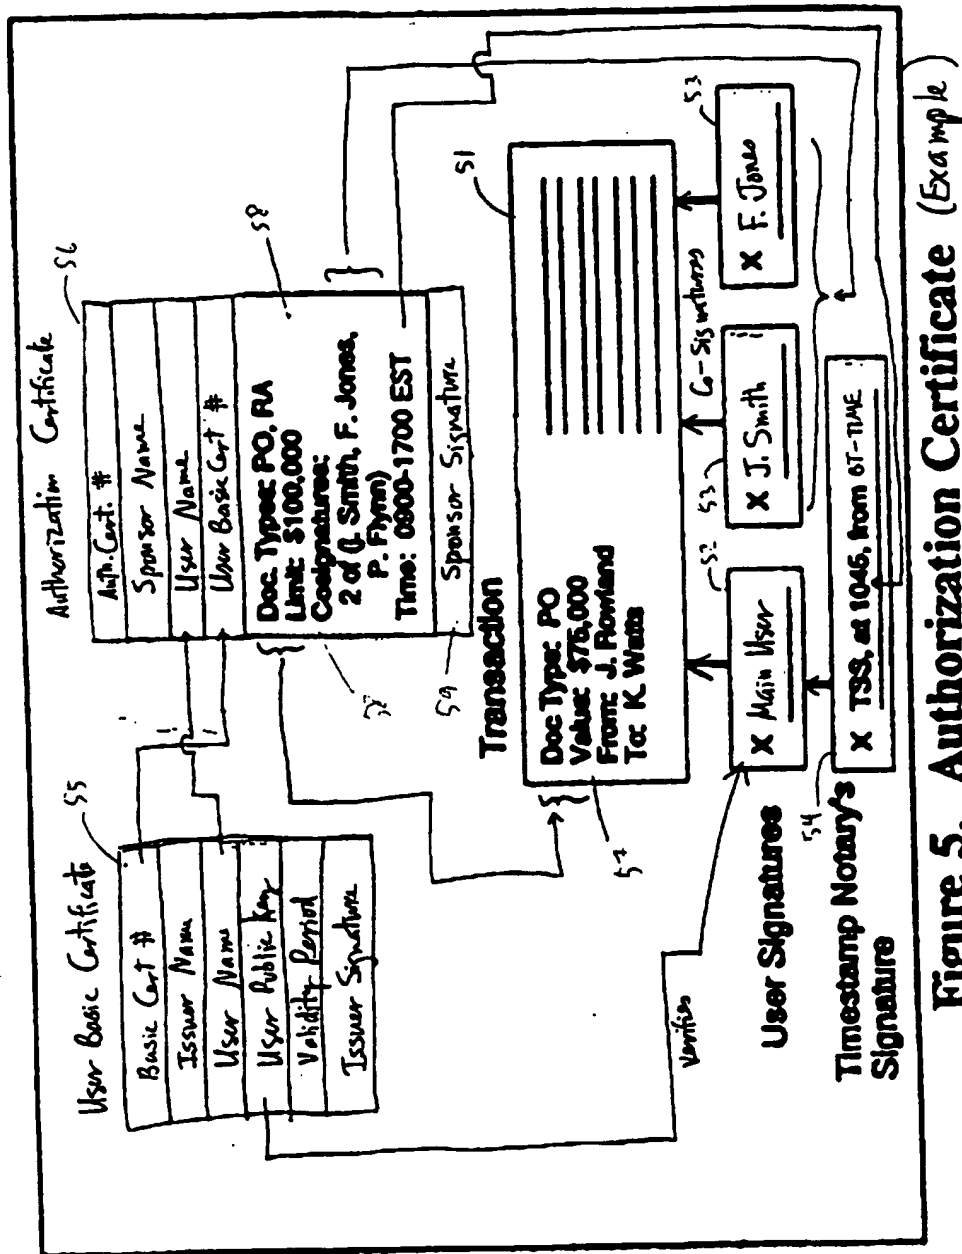 User Basic Certificate
55
Basic Cert #
Issuer Name
User Name
User Public Key
Validity Period
Issuer Signature
Authorization Certificate
56
Auth. Cert. #
Sponsor Name
User Name
User Basic Cert #
Doc. Types: PO, RA
Limit: $100,000
Cosignatures:
2 of (J. Smith, F. Jones,
P. Flynn)
Time: 0900-1700 EST
58
57
Sponsor Signature
59
Transaction
51
Doc Type: PO
Value: $75,000
From: J. Rowland
To: K. Watts
57
Verifies
User Signatures
52
X Main User
53
X J. Smith
Co-Signatures
53
X F. Jones
Timestamp Notary's
Signature
54
X TSS, at 1045, from BT-TIME
Figure 5. Authorization Certificate (Example)